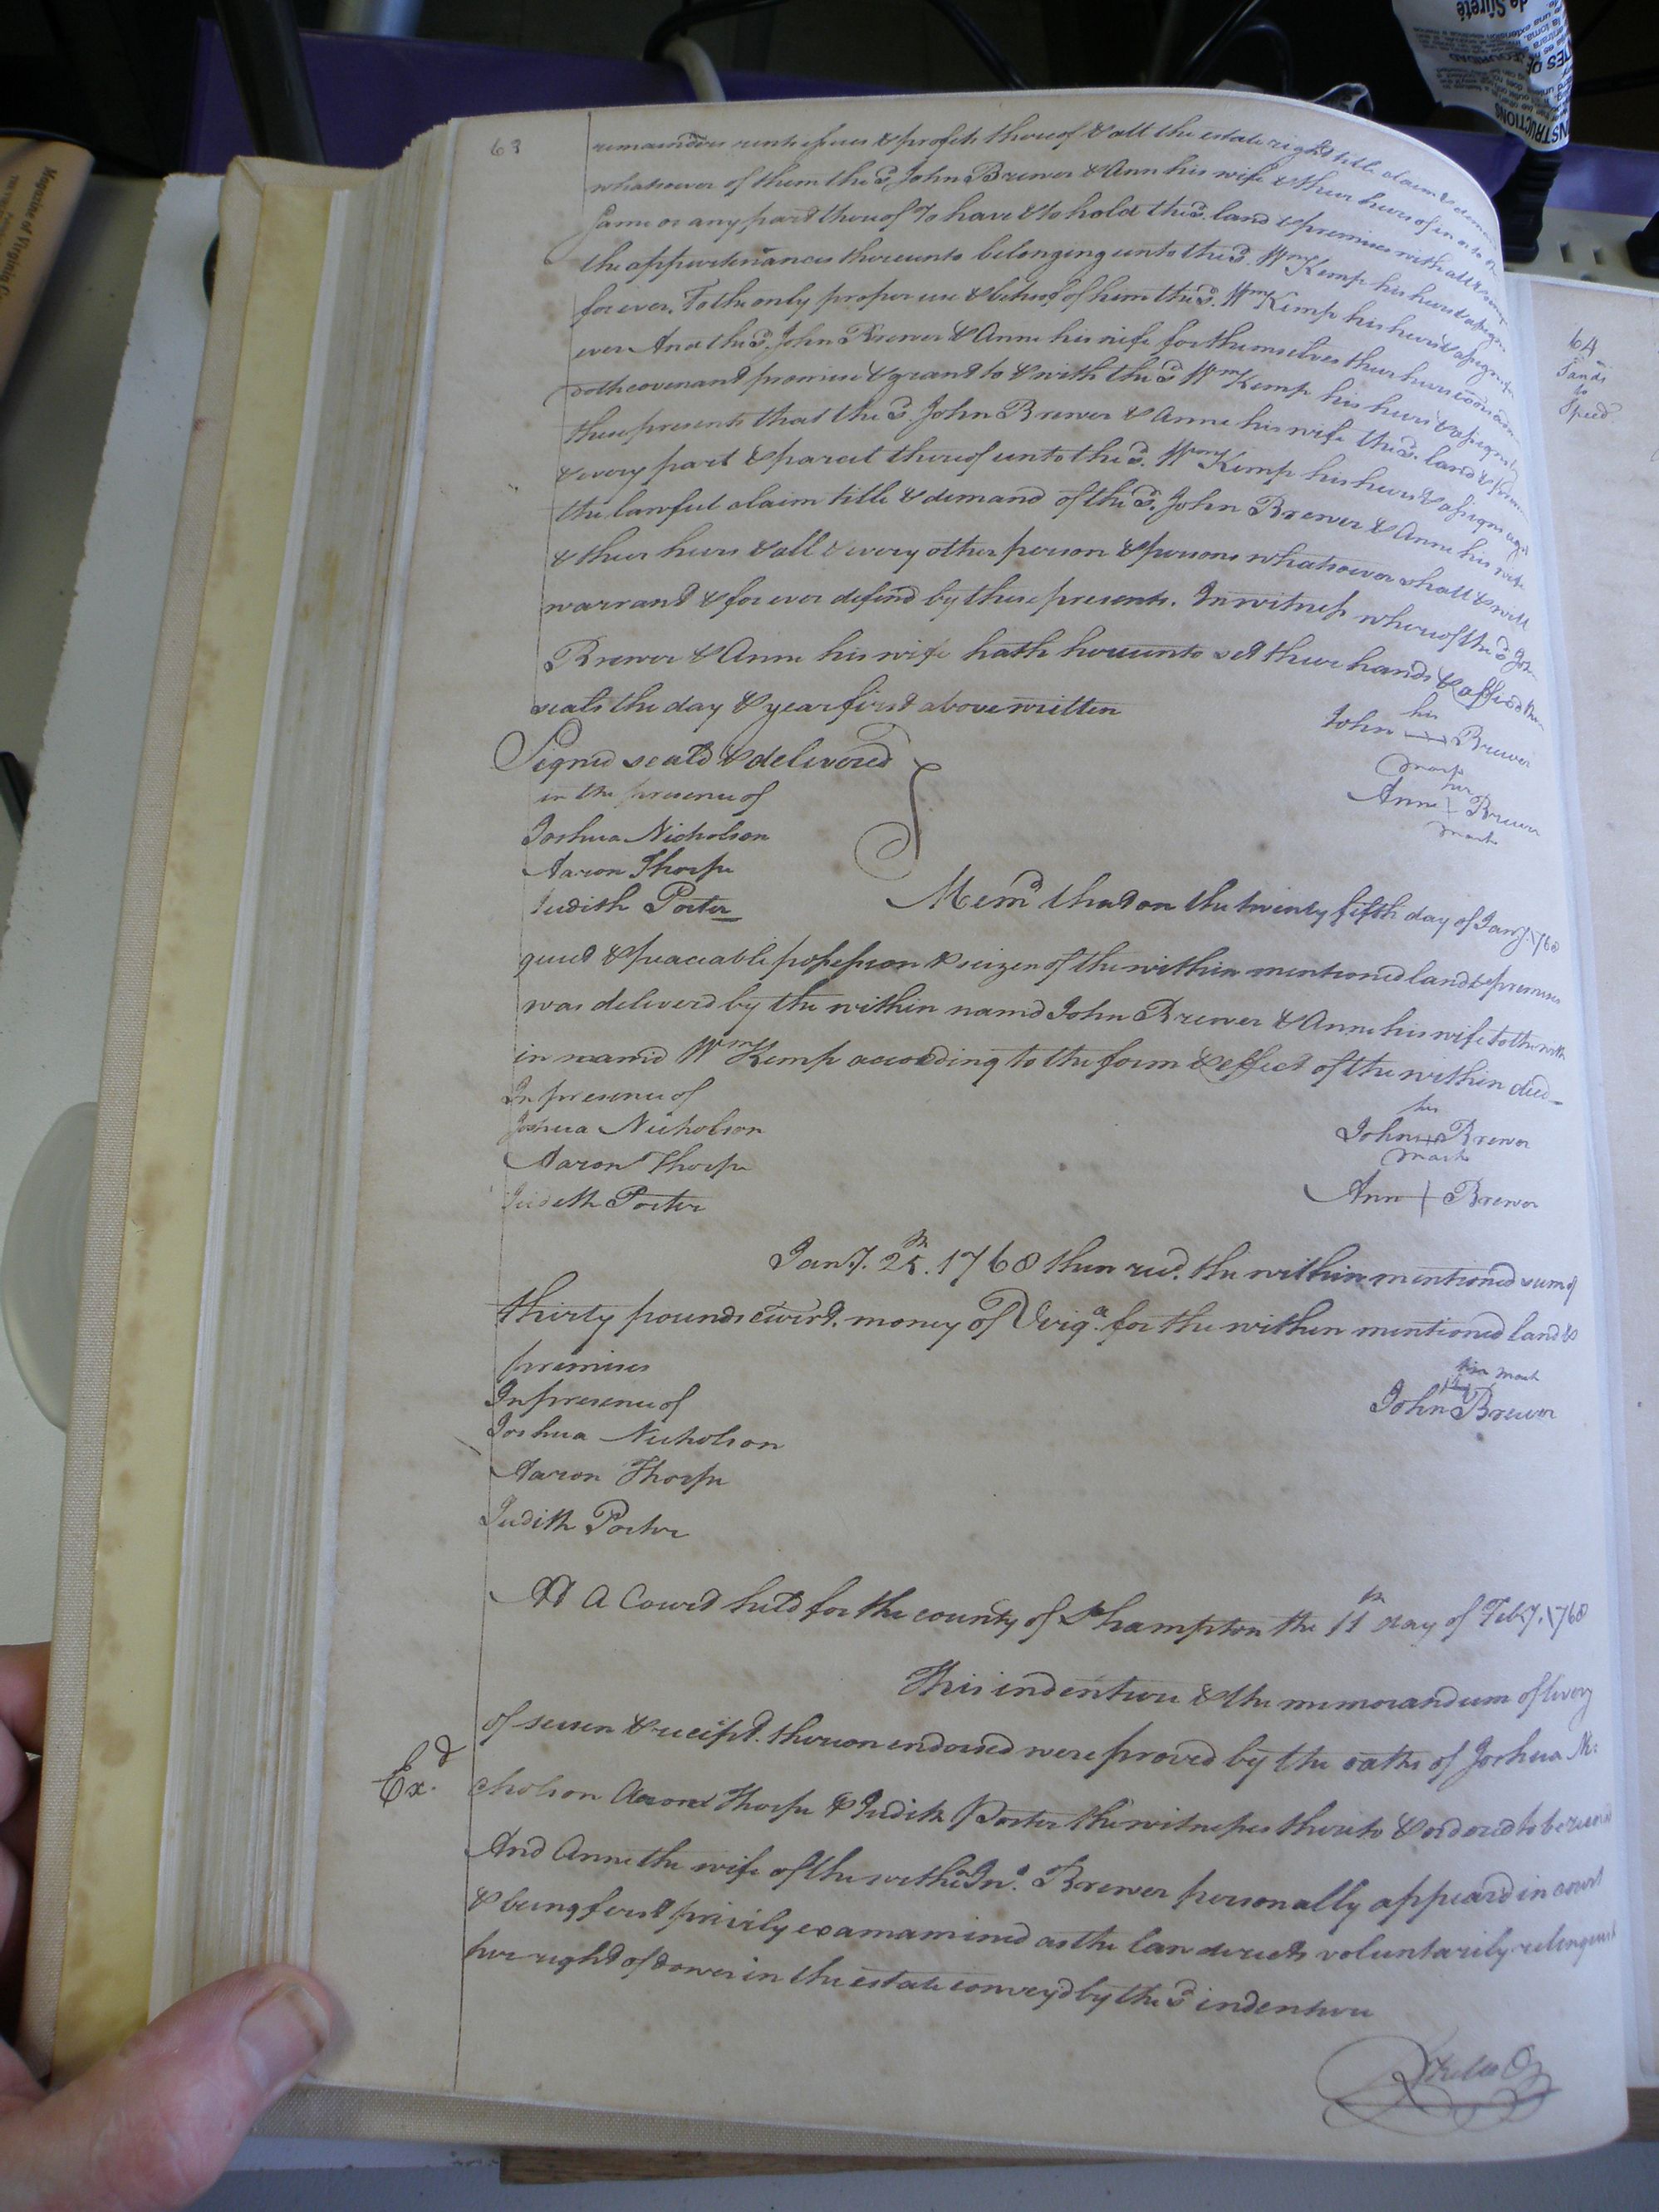 63
remainders rents issues & profits thereof & all the estate right title claim & deman
whatsoever of them the sd. John Brewer & Ann his wife & their heirs of in or to
Same or any part thereof To have & to hold the sd. land & premises with all &
the appurtenances thereunto belonging unto the sd. Wm Kemp his heirs & assigns
for ever. To the only proper use & behoof of him the sd. Wm Kemp his heirs & assigns for
ever And the sd. John Brewer & Anne his wife for themselves their heirs
doth covenant promise & grant to & with the sd. Wm Kemp his heirs & assigns by
these presents that the sd. John Brewer & Anne his wife the sd. land &
& every part & parcel thereof unto the sd. Wm Kemp his heirs & assigns agst
the lawful claim title & demand of the sd. John Brewer & Anne his wife
& their heirs & all & every other person & persons whatsoever shall & will
warrant & for ever defend by these presents. In witness whereof the sd John
Brewer & Anne his wife hath hereunto set their hands & affixd their
seals the day & year first above written
his
John Brewer
mark
Signed seald & deliverd
in the presence of
Joshua Nicholson
Aaron Thorpe
Judith Porter
her
Anne Brewer
mark
Memd that on the twenty fifth day of Jany. 1768
quiet & peaceable possession & seizen of the within mentioned land & premises
was deliverd by the within namd John Brewer & Anne his wife to the with
in namd Wm Kemp according to the form & effect of the within deed
In presence of
Joshua Nicholson
Aaron Thorpe
Judeth Porter
his
John Brewer
mark
Ann Brewer
Jany. 25th. 1768 then recd. the within mentioned sum of
thirty pounds curt. money of Virga. for the within mentioned land &
premises
In presence of
Joshua Nicholson
Aaron Thorpe
Judith Porter
his mark
John Brewer
At A Court held for the county of Shampton the 11th day of Feby. 1768
This indenture & the memorandum of livery
of seisen & receipt. thereon endorsed were proved by the oaths of Joshua Ni:
Exd.
cholson Aaron Thorpe & Judith Porter the witnesses thereto & ordered to be
And Anne the wife of the within Jno. Brewer personally appeard in court
& being first privily examamined as the law directs voluntarily relinquisht
her right of dower in the estate conveyd by the sd indenture
64
Sands
to
Speed
Magazine of Virginia
INSTRUCTIONS
de Sûreté